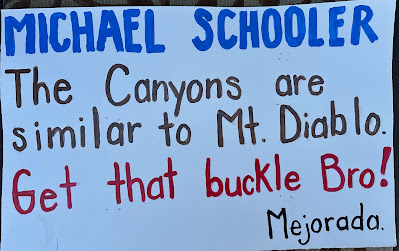 MICHAEL SCHOOLER
The Canyons are
similar to Mt. Diablo.
Get that buckle Bro!
Mejorada.